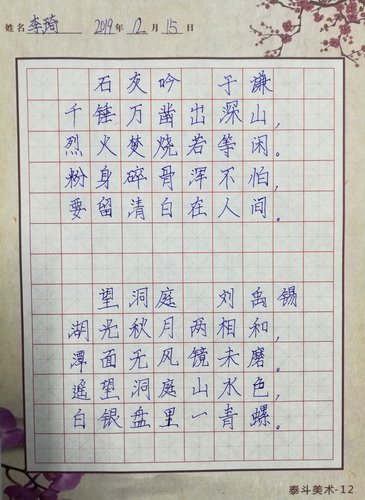 姓名 李琦 2019年 12月 15日
石灰吟 于谦
千锤万凿出深山,
烈火焚烧若等闲。
粉身碎骨浑不怕,
要留清白在人间。
望洞庭 刘禹锡
湖光秋月两相和,
潭面无风镜未磨。
遥望洞庭山水色,
白银盘里一青螺。
泰斗美术-12